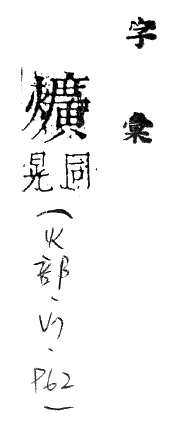 字彙
爌
同
晃
(火部、、P62)